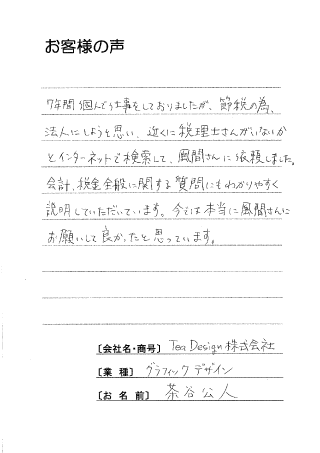 お客様の声
7年間個人で仕事をしておりましたが、節税の為、
法人にしようと思い、近くに税理士さんがいないか
とインターネットで検索して、風間さんに依頼しました。
会計、税金全般に関する質問にもわかりやすく
説明していただいています。今では本当に風間さんに
お願いして良かったと思っています。
〔会社名・商号〕 Tea Design 株式会社
〔業種〕 グラフィックデザイン
〔お名前〕 茶谷公人